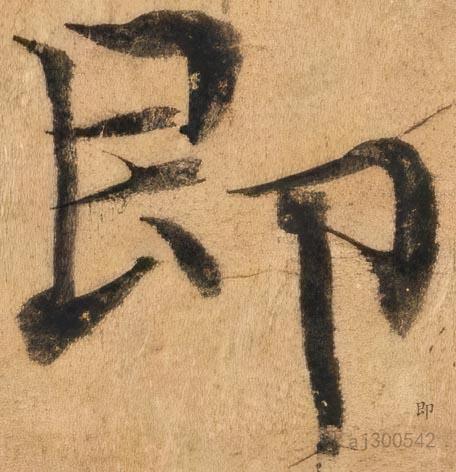 即
即
aj300542